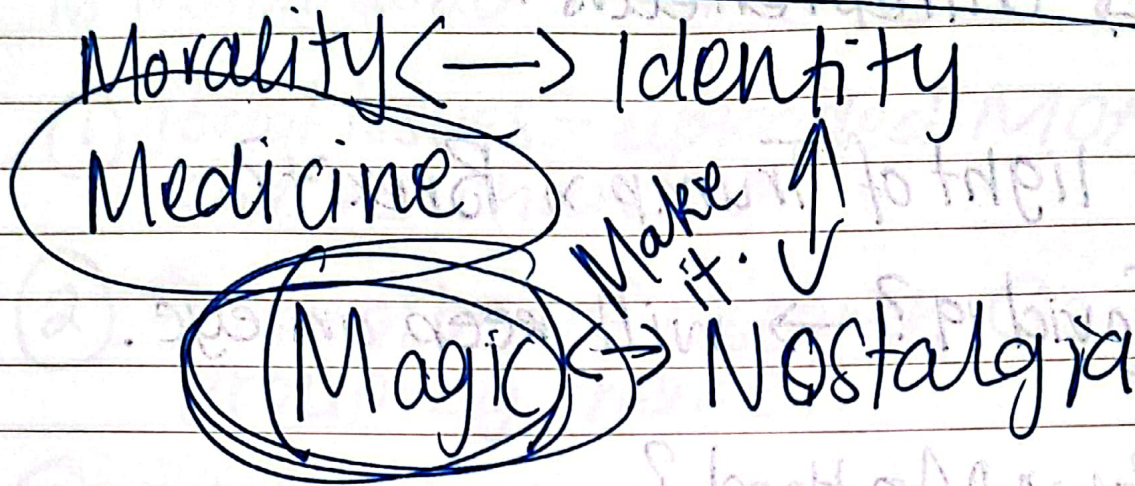 Morality <—> Identity
Medicine
Make
it.
Magic <—> Nostalgia